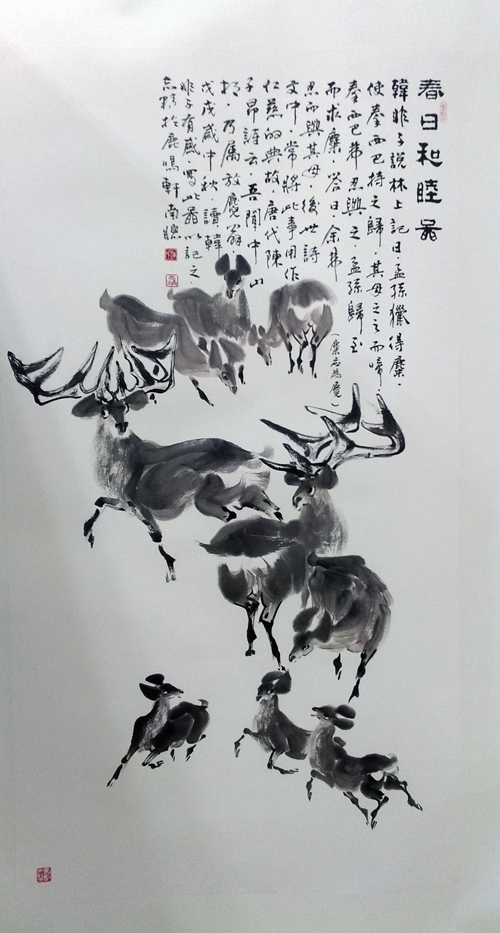 春日和睦図
韓非子說林上記曰·孟孫獵得麋·
使秦西巴持之歸·其母之之而啼
秦西巴弗忍與之·孟孫歸至
而求麋·答曰·余弗
忍而與其母·後世詩
文中·常將此事用作
仁慈的典故·唐代陳
子昂詩云吾聞中山
相·乃属放麑翁
戊戌歲中秋·讀韓
非子有感·寫此圖以記之·
志於鹿鳴軒南
(麋应為麑)